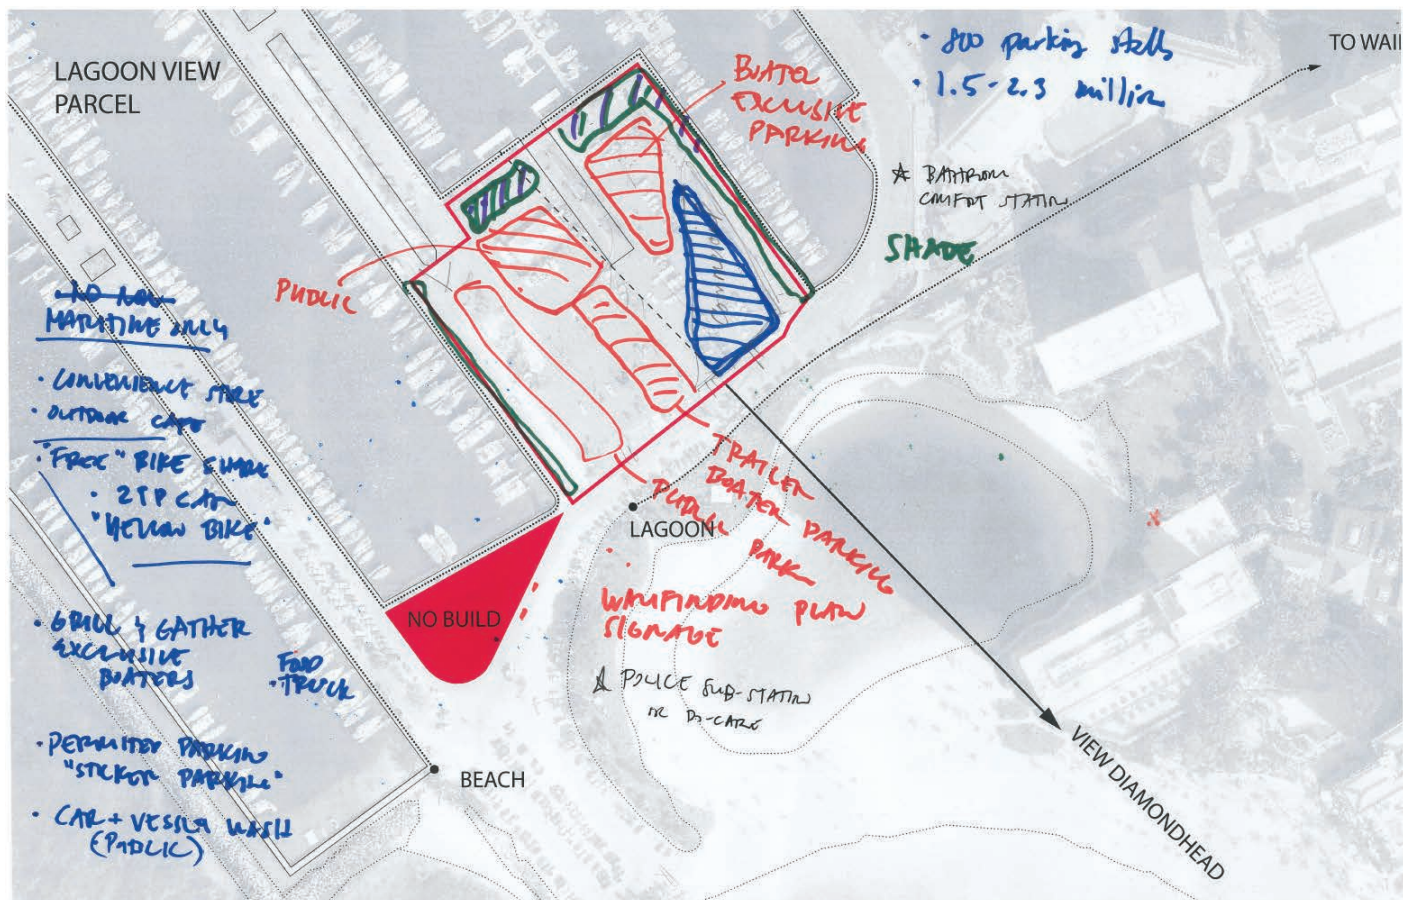 LAGOON VIEW
PARCEL
• 800 parking stalls
• 1.5-2.3 million
TO WAI
BOATER
EXCLUSIVE
PARKING
☆ BATHROOM
COMFORT STATION
SHADE
PUBLIC
MARITIME ONLY
• CONVENIENCE STORE
• OUTDOOR CAFE
• "FREE" BIKE SHARE
"YELLOW BIKE"
• GRILL & GATHER
EXCLUSIVE
BOATERS
FOOD
• TRUCK
• PERMITED PARKING
"STICKER PARKING"
• CAR + VESSEL WASH
(PUBLIC)
TRAILER
BOATER PARKING
PUBLIC
PARK
LAGOON
NO BUILD
WAYFINDING PLAN
SIGNAGE
☆ POLICE SUB-STATION
OR
BEACH
VIEW DIAMONDHEAD